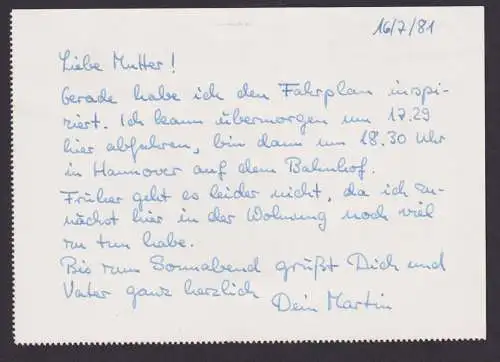 16/7/81
Liebe Mutter!
Gerade habe ich den Fahrplan inspi-
ziert. Ich kann übermorgen um 17.29
hier abfahren, bin dann um 18.30 Uhr
in Hannover auf dem Bahnhof.
Früher geht es leider nicht, da ich zu-
nächst hier in der Wohnung noch viel
zu tun habe.
Bis zum Sonnabend grüßt Dich und
Vater ganz herzlich
Dein Martin